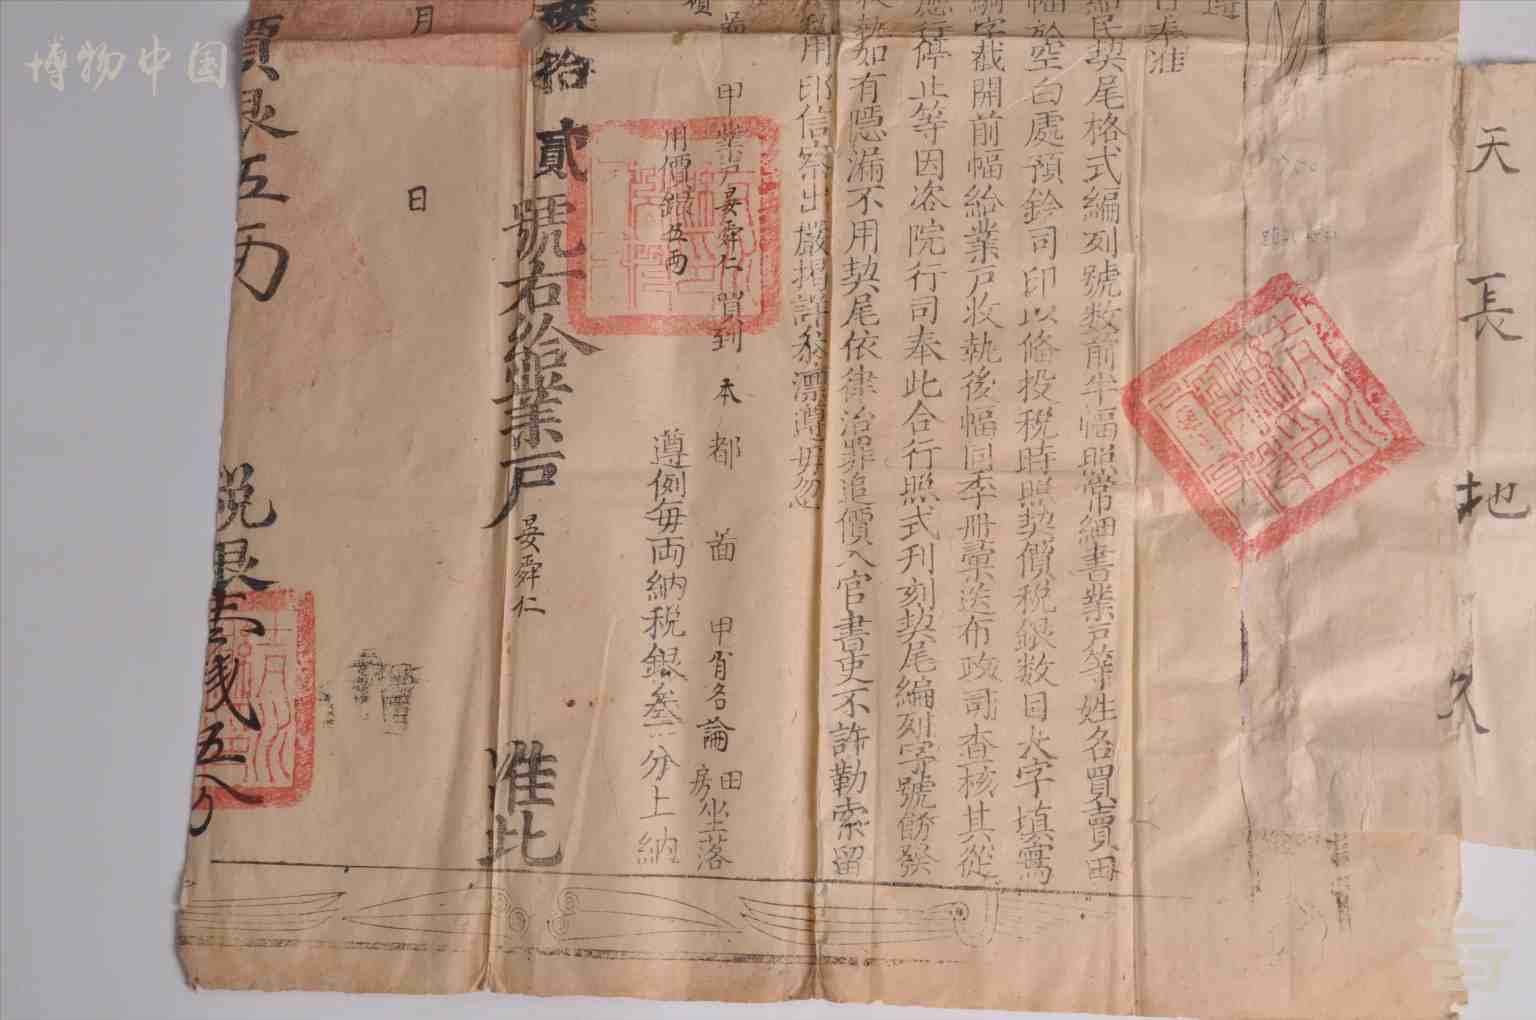 天長地久
遵
奉准
給民契尾格式編列號數前半幅照常細書業戶等姓名買賣田
幅於空白處預鈐司印以俻投稅時照契價稅銀數目大字填寫
騎字截開前幅給業戶收執後幅同季冊彙送布政司查核其從
應行停止等因咨院行司奉此合行照式刊刻契尾編列字號飭發
執如有隱漏不用契尾依律治罪追價入官書吏不許勒索留
用印信察出嚴揭詳叅凛遵毋忽
甲業戶晏舜仁買到本都啚甲胥名論田房坐落
用價銀五両
遵例每両納稅銀叁分上納
拾貳號右給業戶晏舜仁准此
月日
價艮五両稅艮壹錢五分
博物中国